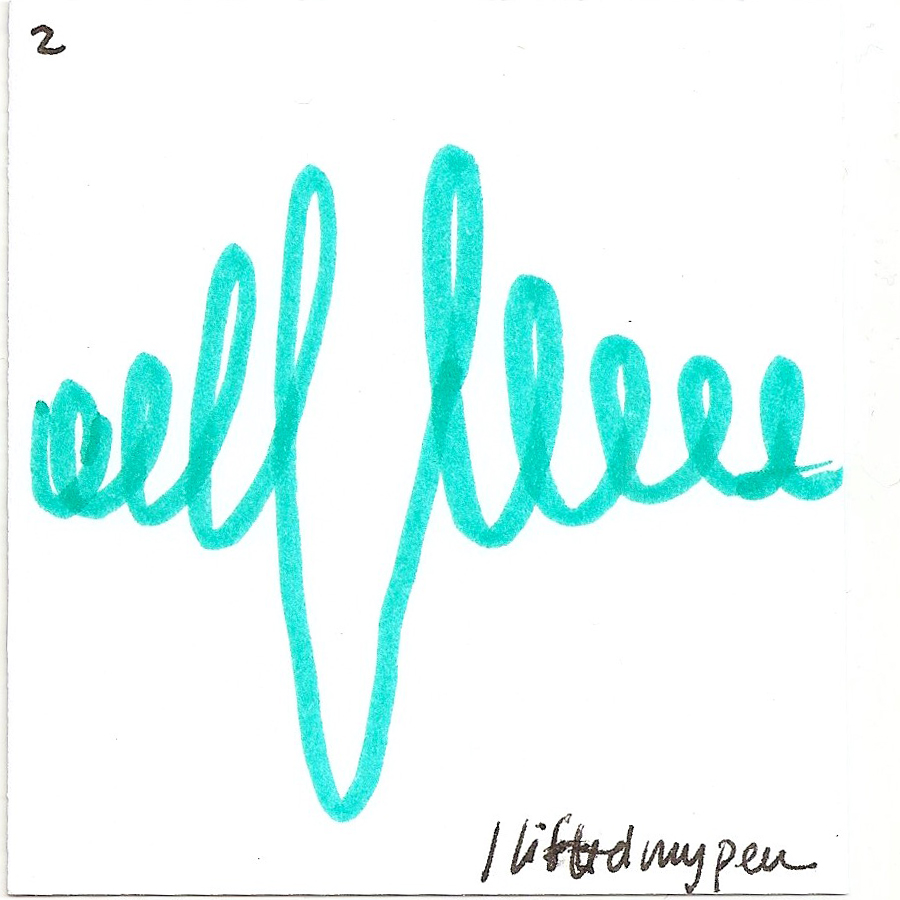 2
I lifted my pen